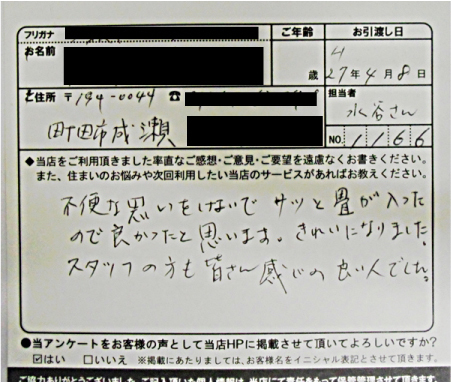 フリガナ
ご年齢
お引渡し日
お名前
歳
H27年4月8日
ご住所 〒194-0044 ☎
担当者
水谷さん
町田市成瀬
NO. 1166
◆当店をご利用頂きました率直なご感想・ご意見・ご要望を遠慮なくお書きください。
また、住まいのお悩みや次回利用したい当店のサービスがあればお教えください。
不便な思いをしないでサッと畳が入った
ので良かったと思います。きれいになりました。
スタッフの方も皆さん感じの良い人でした。
●当アンケートをお客様の声として当店HPに掲載させて頂いてよろしいですか?
☑はい □いいえ ※掲載にあたりましては、お客様名をイニシャル表記とさせて頂きます。
ご協力ありがとうございました。ご記入頂いた個人情報は、当店にて責任をもって保管管理させて頂きます。